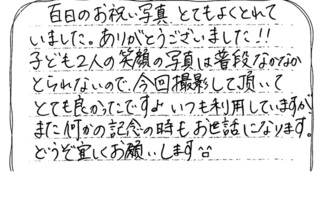 百日のお祝い写真、とてもよくとれて
いました。ありがとうございました!!
子ども2人の笑顔の写真は普段なかなか
とられないので、今回撮影して頂いて
とても良かったですよ いつも利用していますが、
また何かの記念の時もお世話になります。
どうぞ宜しくお願いします